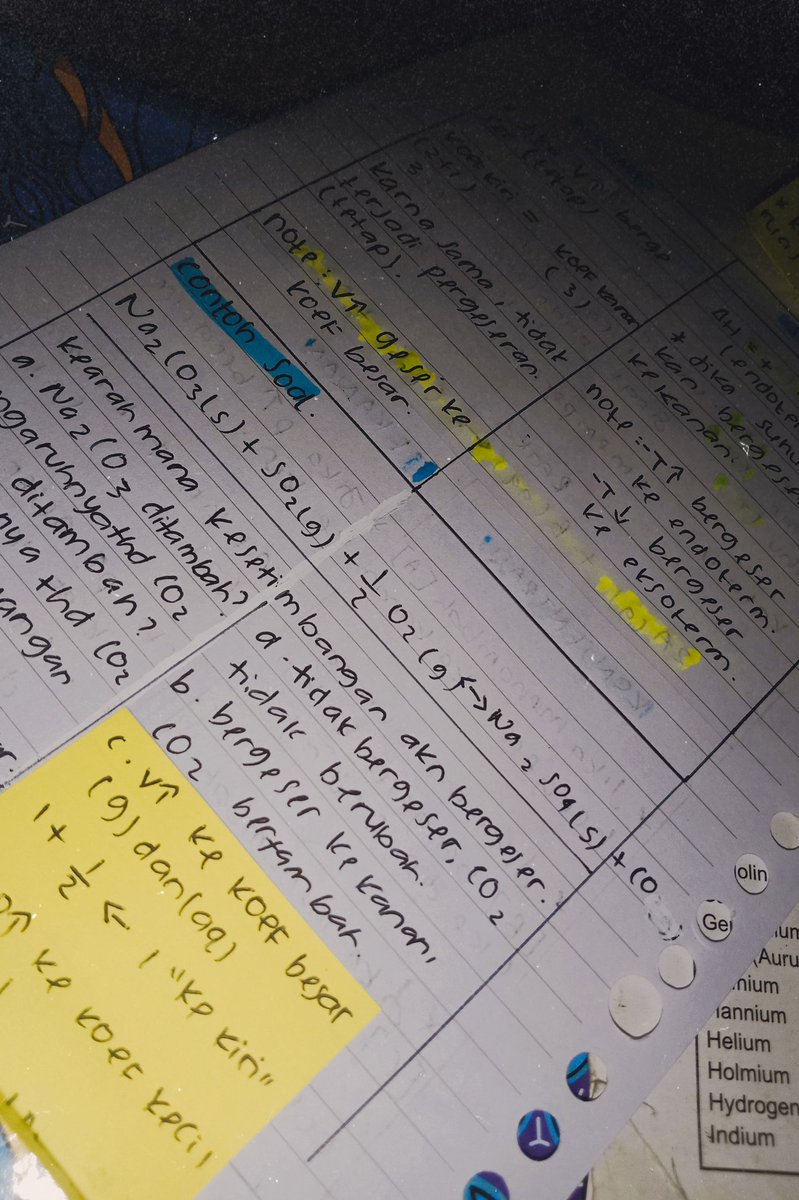 koef kiri = koef kanan
(2+1) (3)
3
karna sama, tidak
terjadi pergeseran.
(tetap).
note: V↑ geser ke
koef besar.
ΔH = +
(endoter
* jika suhu
kan bergese
ke kanan.
note: -T↑ bergeser
ke endoterm.
-T↓ bergeser
ke eksoterm.
contoh soal.
Na2CO3(s) + SO2(g) + 1/2 O2(g) ⇌ Na2SO4(s) + CO
kearah mana kesetimbangan akn bergeser.
a. Na2CO3 ditambah?
ngaruhnya thd CO2
ditambah?
nya thd CO2
angan
a. tidak bergeser, CO2
tidak berubah.
b. bergeser ke kanan,
CO2 bertambah.
c. V↑ ke koef besar
(g) dan (aq)
1 + 1/2 ← 1 "ke kiri"
↑ ke koef kecil
olin
Ge
um
(Auru
nium
annium
Helium
Holmium
Hydrogen
Indium